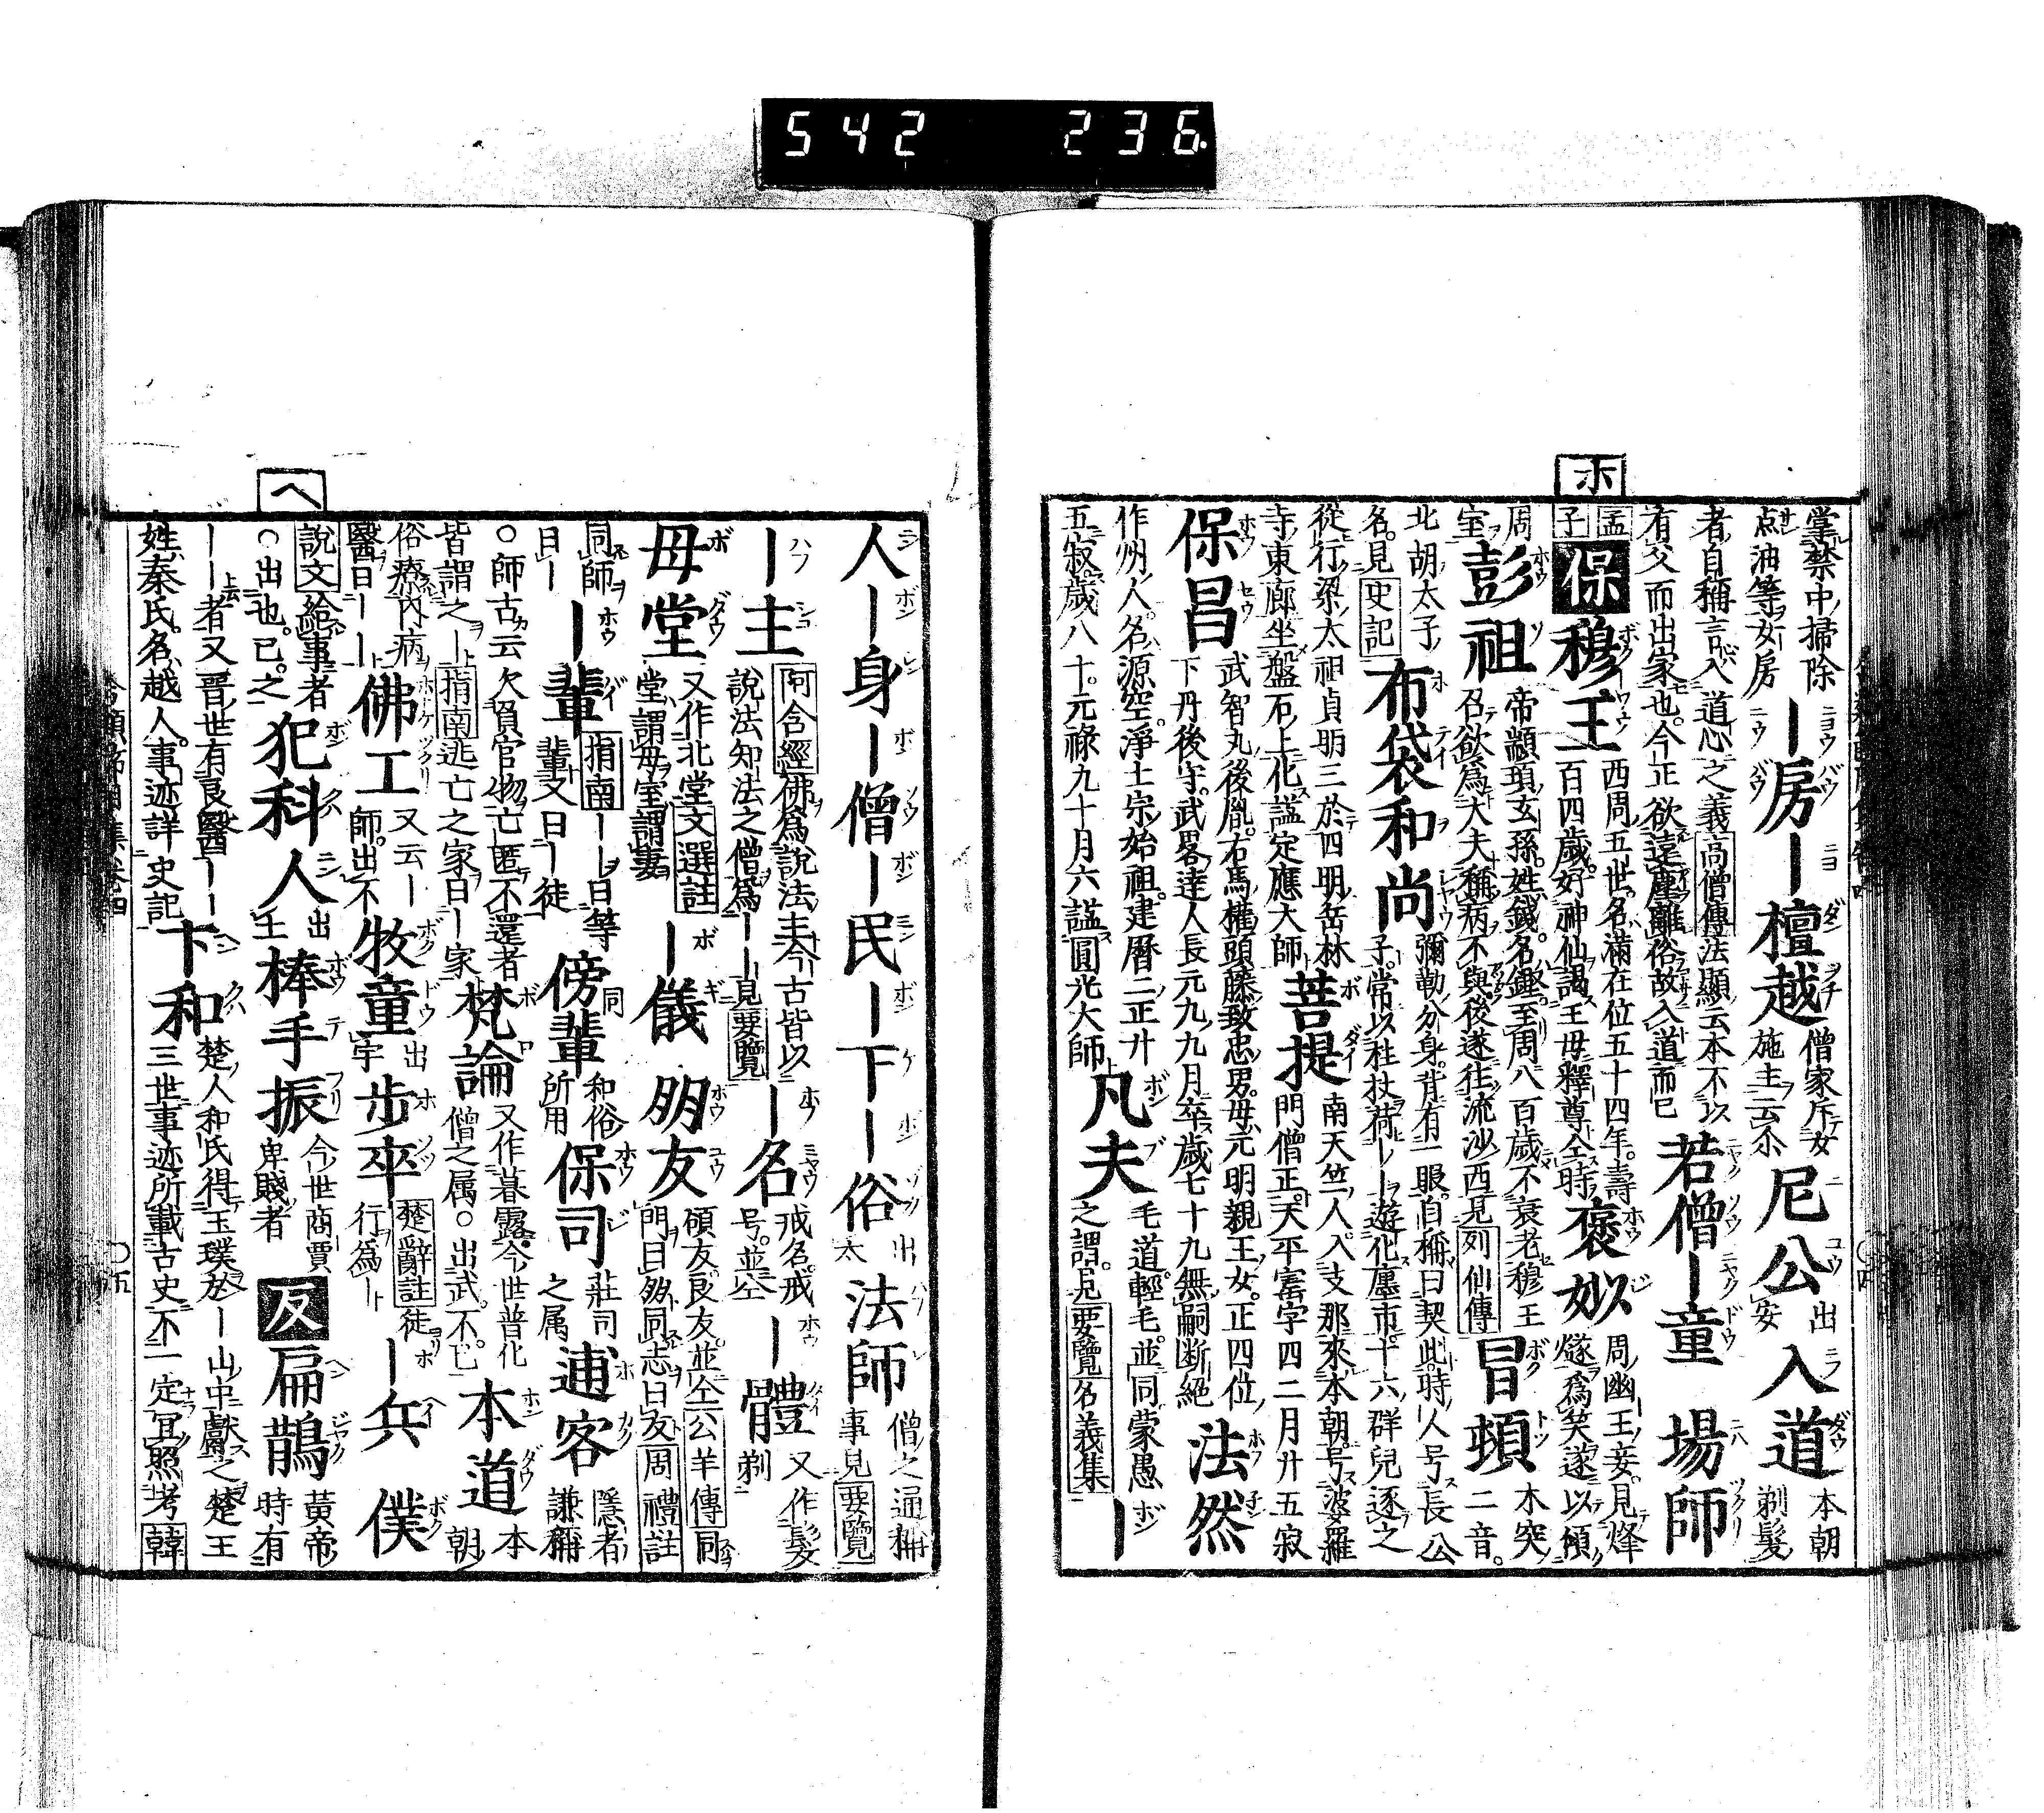 542 236
ホ
掌禁中掃除
点油等女房
―房―檀越
僧家斥女
施主云尒
尼公
出
安
入道
本朝
剃髮
者自稱言入道心之義高僧傳法顯云本不以
有父而出家也今正欲遠塵離俗故入道而已
若僧―童
場師
孟
子
保
穆王
西周五世名滿在位五十四年壽
百四歲好神仙謁王母釋尊仝時
褒姒
周幽王妾見烽
燧爲笑遂以傾
周
室
彭祖
帝顓頊玄孫姓錢名鏗至周八百歲不衰老穆王
召欲爲大夫稱病不與後遂往流沙西見列仙傳
冒頓
木突
二音
北胡太子
名見史記
布袋和尚
彌勒分身背有一眼自稱曰契此時人号長公
子常以柱杖荷―遊化廛市十六群兒逐之
從行梁太祖貞明三於四明岳林
寺東廊坐盤石上化謚定應大師
菩提
南天竺人入支那來本朝号婆羅
門僧正天平寳字四二月廾五寂
保昌
武智丸後胤右馬權頭藤致忠男母元明親王女正四位
下丹後守武畧達人長元九九月卒歲七十九無嗣断絕
法然
作州人名源空淨土宗始祖建曆二正廾
五寂歲八十元禄九十月六謚圓光大師
凡夫
毛道輕毛並同蒙愚
之謂見要覽名義集
―
人―身―僧―民―下―俗
出
太
法師
僧之通稱
事見要覽
―主
阿含經佛爲說法主今古皆以
說法知法之僧爲――見要覽
―名
戒名戒
号並仝
―體
又作髮
剃
母堂
又作北堂文選註
堂謂母室謂妻
―儀
朋友
碩友良友並仝公羊傳同
門曰朋同志曰友周禮註
同師
曰―
―輩
指南――曰等
輩又曰―徒
傍輩
同
和俗
所用
保司
莊司
之属
逋客
隱者
謙稱
○師古云欠負官物亡匿不還者
皆謂之―指南逃亡之家曰―家
梵論
又作暮露今世普化
僧之属○出武不已
本道
本
朝
俗療内病
醫曰――
佛工
又云―
師出不
牧童
出
宇
步卒
楚辭註徒
行爲―
―兵
僕
說文給事者
○出也已之
犯科人
出
王
棒手振
今世商賈
卑賤者
ヘ
反
扁鵲
黃帝
時有
――者又晋世有良醫――
姓秦氏名越人事迹詳史記
卞和
楚人和氏得玉璞於―山中獻之楚王
三世事迹所載古史不一定冝照考韓